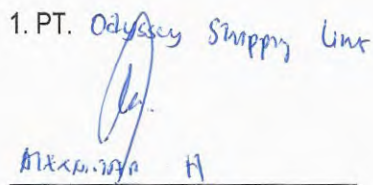 1. PT. Odyssey Shipping Line
H